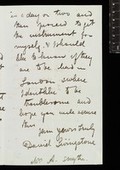 in a day or two and
then proceed to get
the instrument for
myself. I should
like to know if they
are to be had in
London where
I should like to be
troublesome and
hope you will excuse
this
Yours truly
David Livingstone
Mr A. Smyth